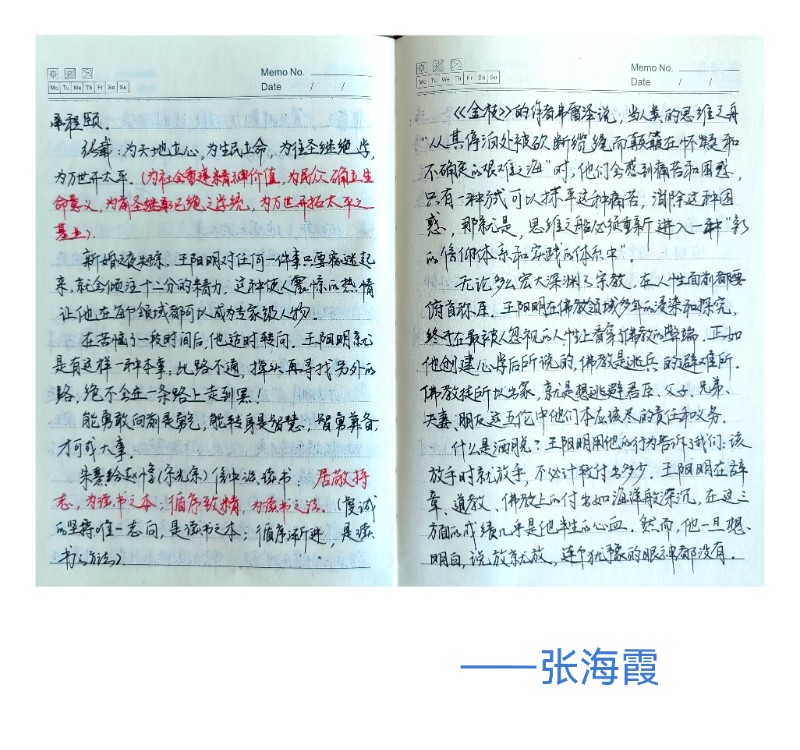 Memo No.
Mo Tu We Th Fr Sa Su
Date / /
程颐.
张载：为天地立心，为生民立命，为往圣继绝学，
为万世开太平。(为社会重建精神价值，为民众确立生
命意义，为前圣继承已绝之学统，为万世开拓太平之
基业).
新婚之夜失踪，王阳明对任何一件事只要痴迷起
来，就会倾注十二分的精力，这种使人震惊的热情
让他在每个领域都可以成为专家级人物.
在苦恼了一段时间后，他适时转向，王阳明就
是有这样一种本事，此路不通，掉头再寻找另外的
路，绝不会在一条路上走到黑.
能勇敢向前是勇气，能转身是智慧，智勇兼备，
才可成大事.
朱熹给赵惇(宋光宗)信中谈读书，居敬持
志，为读书之本；循序致精，为读书之法。(虔诚
的坚持唯一志向，是读书之本；循序渐进，是读
书的方法)
Memo No.
Mo Tu We Th Fr Sa Su
Date / /
《金枝》的作者弗雷泽说，当人类的思维之舟
“从其停泊处被砍断缆绳而颠簸在怀疑和
不确定的艰难之海”时，他们会感到痛苦和困惑，
只有一种方式可以抹平这种痛苦，消除这种困
惑，那就是，思维之船必须重新进入一种“新
的信仰体系和实践的体系中”.
无论多么宏大深渊的宗教，在人性面前都要
俯首称臣，王阳明在佛教领域多年的浸染和探究，
终于在最被人忽视的人性上看穿了佛教的弊端. 正如
他创建心学后所说的，佛教是逃兵的避难所.
佛教徒所以出家，就是想逃避君臣、父子、兄弟、
夫妻、朋友这五伦中他们本应该尽的责任和义务.
什么是洒脱？王阳明用他的行为告诉我们：该
放手时就放手，不必计较付出多少. 王阳明在辞
章、道教、佛教上的付出如海洋般深沉，在这三
方面的成绩几乎是他半生的心血. 然而，他一旦想
明白，说放就放，连个犹豫的眼神都没有.
——张海霞